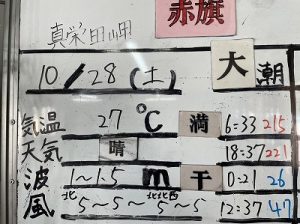 赤旗
真栄田岬
10/28(土) 大潮
気温 27℃ 満 6:33 215
天気 晴 18:37 221
波 1～1.5m 干 0:21 26
風 北5～5～北北西5～5 12:37 47